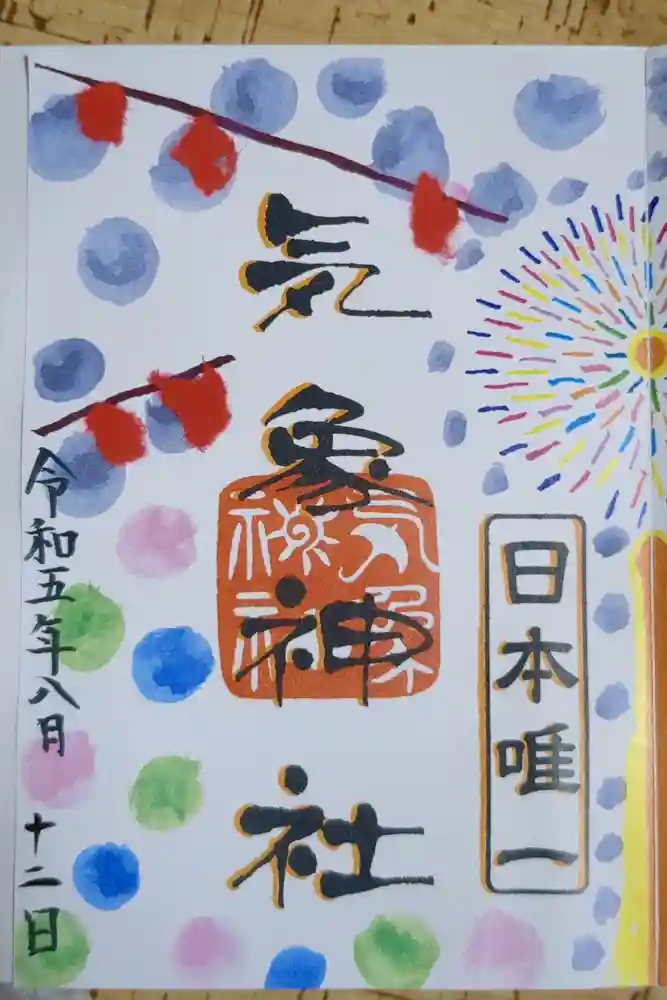 日本唯一
気象神社
気象
神社
令和五年八月 十二日